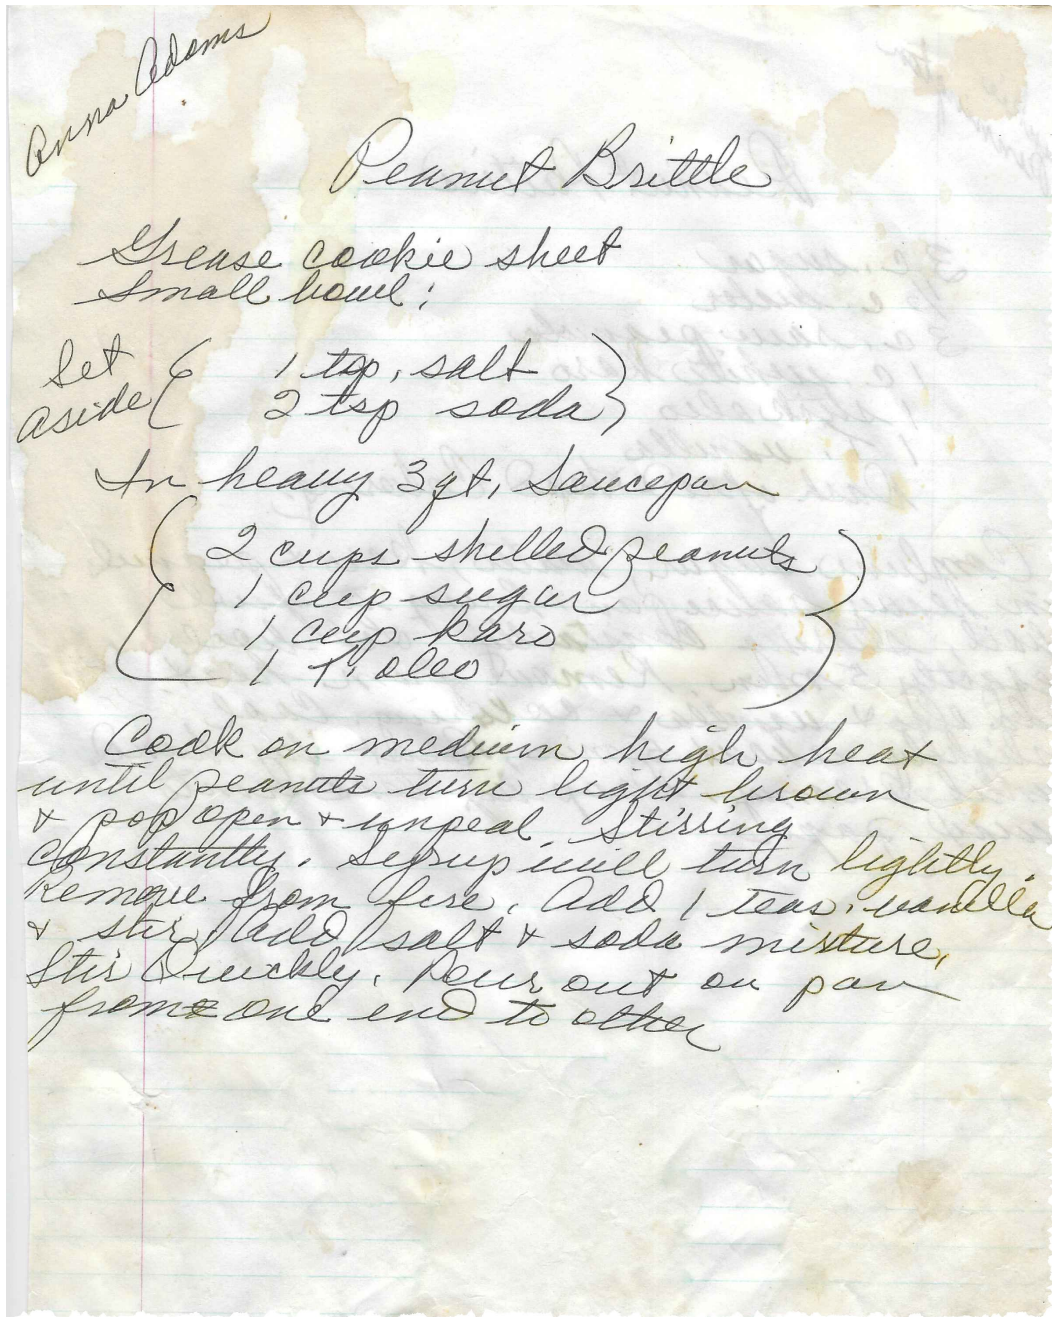 Anna Adams
Peanut Brittle
Grease cookie sheet
Small bowl:
Set aside
1 tsp. salt
2 tsp soda
In heavy 3 qt. Saucepan
2 cups shelled peanuts
1 cup sugar
1 cup karo
1 T. oleo
Cook on medium high heat
until peanuts turn light brown
& pop open & unpeal. Stirring
constantly. Syrup will turn lightly.
Remove from fire. Add 1 teas. vanilla
& stir. Add salt & soda mixture.
Stir Quickly. Pour out on pan
from one end to other